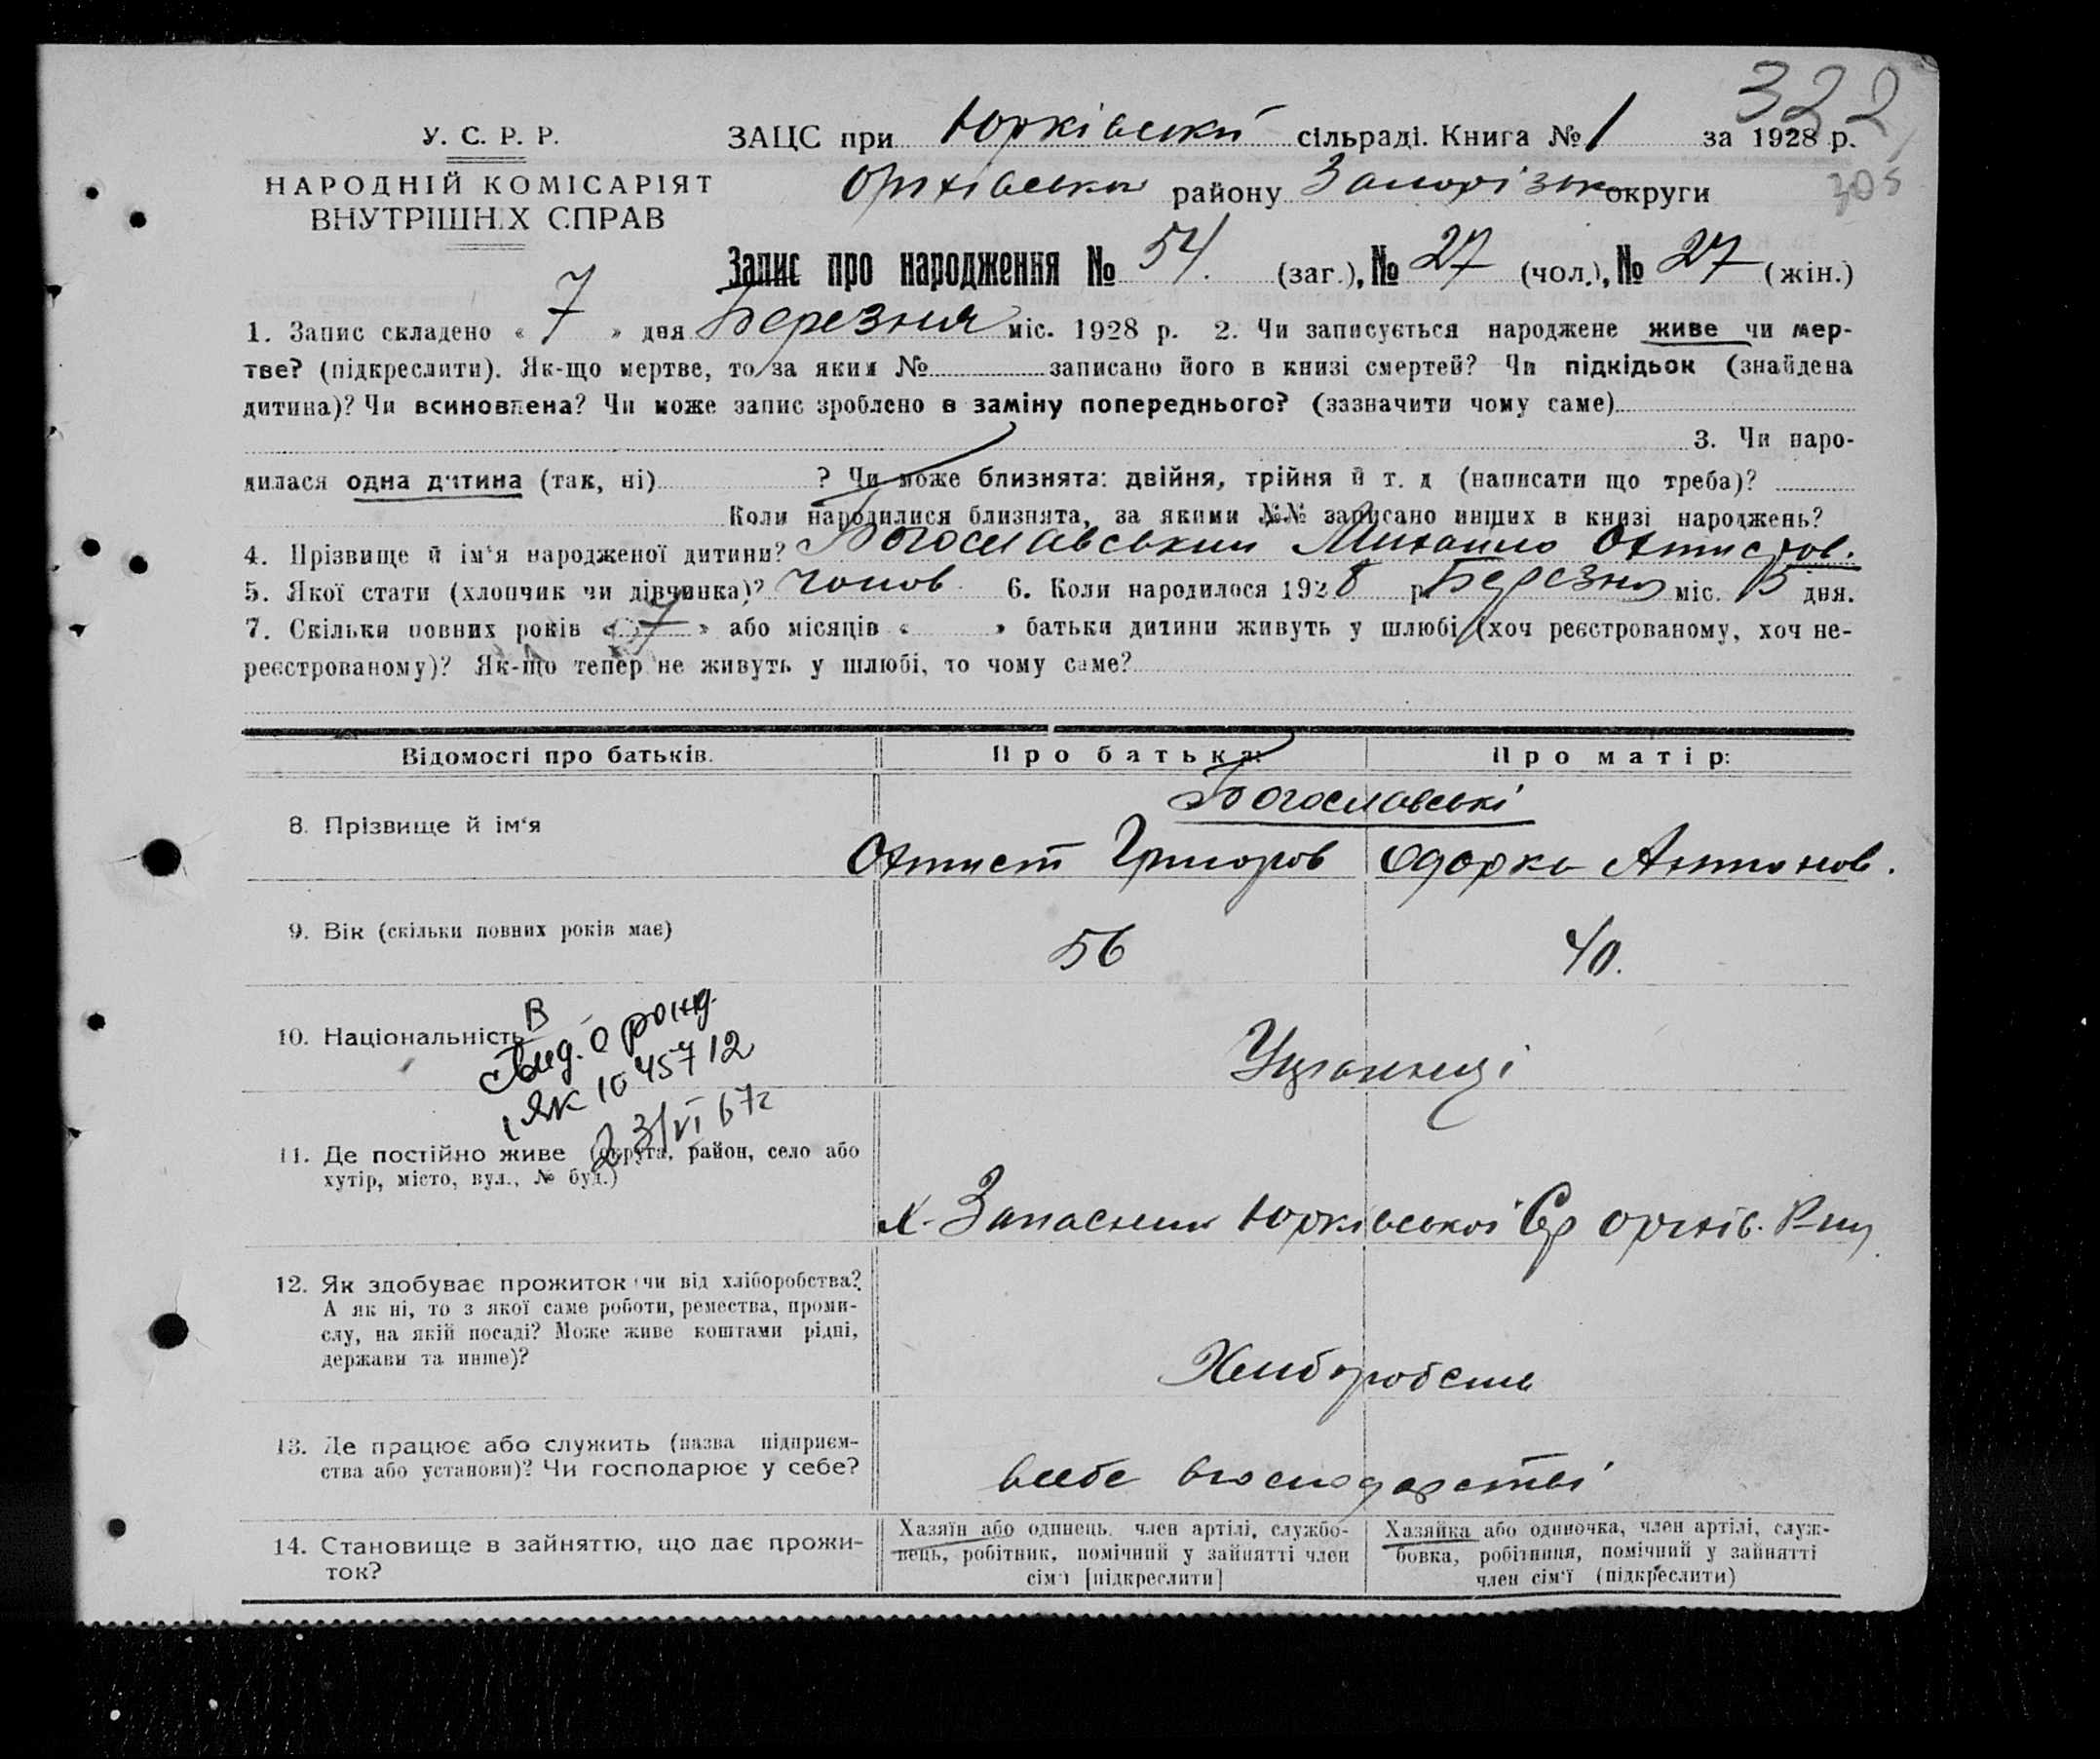 322
У. С. Р. Р.
ЗАЦС при Юрківській сільраді. Книга № 1 за 1928 р.
305
НАРОДНІЙ КОМІСАРІЯТ
Оріхівськ району Запорізьк округи
ВНУТРІШНІХ СПРАВ
Запис про народження № 54. (заг.), № 27 (чол.), № 27 (жін.)
1. Запис складено « 7 » дня Березня міс. 1928 р. 2. Чи записується народжене живе чи мер-
тве? (підкреслити). Як-що мертве, то за яким № записано його в книзі смертей? Чи підкідьок (знайдена
дитина)? Чи всиновлена? Чи може запис зроблено в заміну попереднього? (зазначити чому саме)
3. Чи наро-
дилася одна дитина (так, ні) ? Чи може близнята: двійня, трійня й т. д (написати що треба)?
Коли народилися близнята, за якими №№ записано инших в книзі народжень?
4. Прізвище й ім‘я народженої дитини? Богославський Михайло Охтистов.
5. Якої стати (хлопчик чи дівчинка)? чолов 6. Коли народилося 1928 р Березня міс. 5 дня.
7. Скільки повних років « 7 » або місяців « » батьки дитини живуть у шлюбі (хоч реєстрованому, хоч не-
реєстрованому)? Як-що тепер не живуть у шлюбі, то чому саме?
Відомості про батьків. Про батька: Про матір:
Богославські
8. Прізвище й ім‘я
Охтист Григоров Одарка Антонов.
9. Вік (скільки повних років має) 56 40.
В
10. Національність Українці
Свид. о рожд.
ЯК 1045712
23/VI 67г
11. Де постійно живе (округа, район, село або
хутір, місто, вул., № буд.)
х. Запасний Юрківської С/р Оріхів. Р-ну
12. Як здобуває прожиток чи від хліборобства?
А як ні, то з якої саме роботи, ремества, проми-
слу, на якій посаді? Може живе коштами рідні,
держави та инше)?
Хлиборобства
13. Де працює або служить (назва підприєм-
ства або установи)? Чи господарює у себе?
всебе вгосподарстві
14. Становище в зайняттю, що дає прожи-
ток?
Хазяїн або одинець, член артілі, службо-
вець, робітник, помічний у зайнятті член
сім‘ї [підкреслити]
Хазяйка або одиночка, член артілі, служ-
бовка, робітниця, помічний у зайнятті
член сім‘ї (підкреслити)